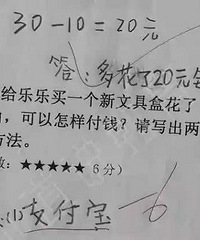 30-10=20元
答:多花了20元钱
给乐乐买一个新文具盒花了
,可以怎样付钱?请写出两
方法。
数:★★★★★ 6分)
:(1)支付宝